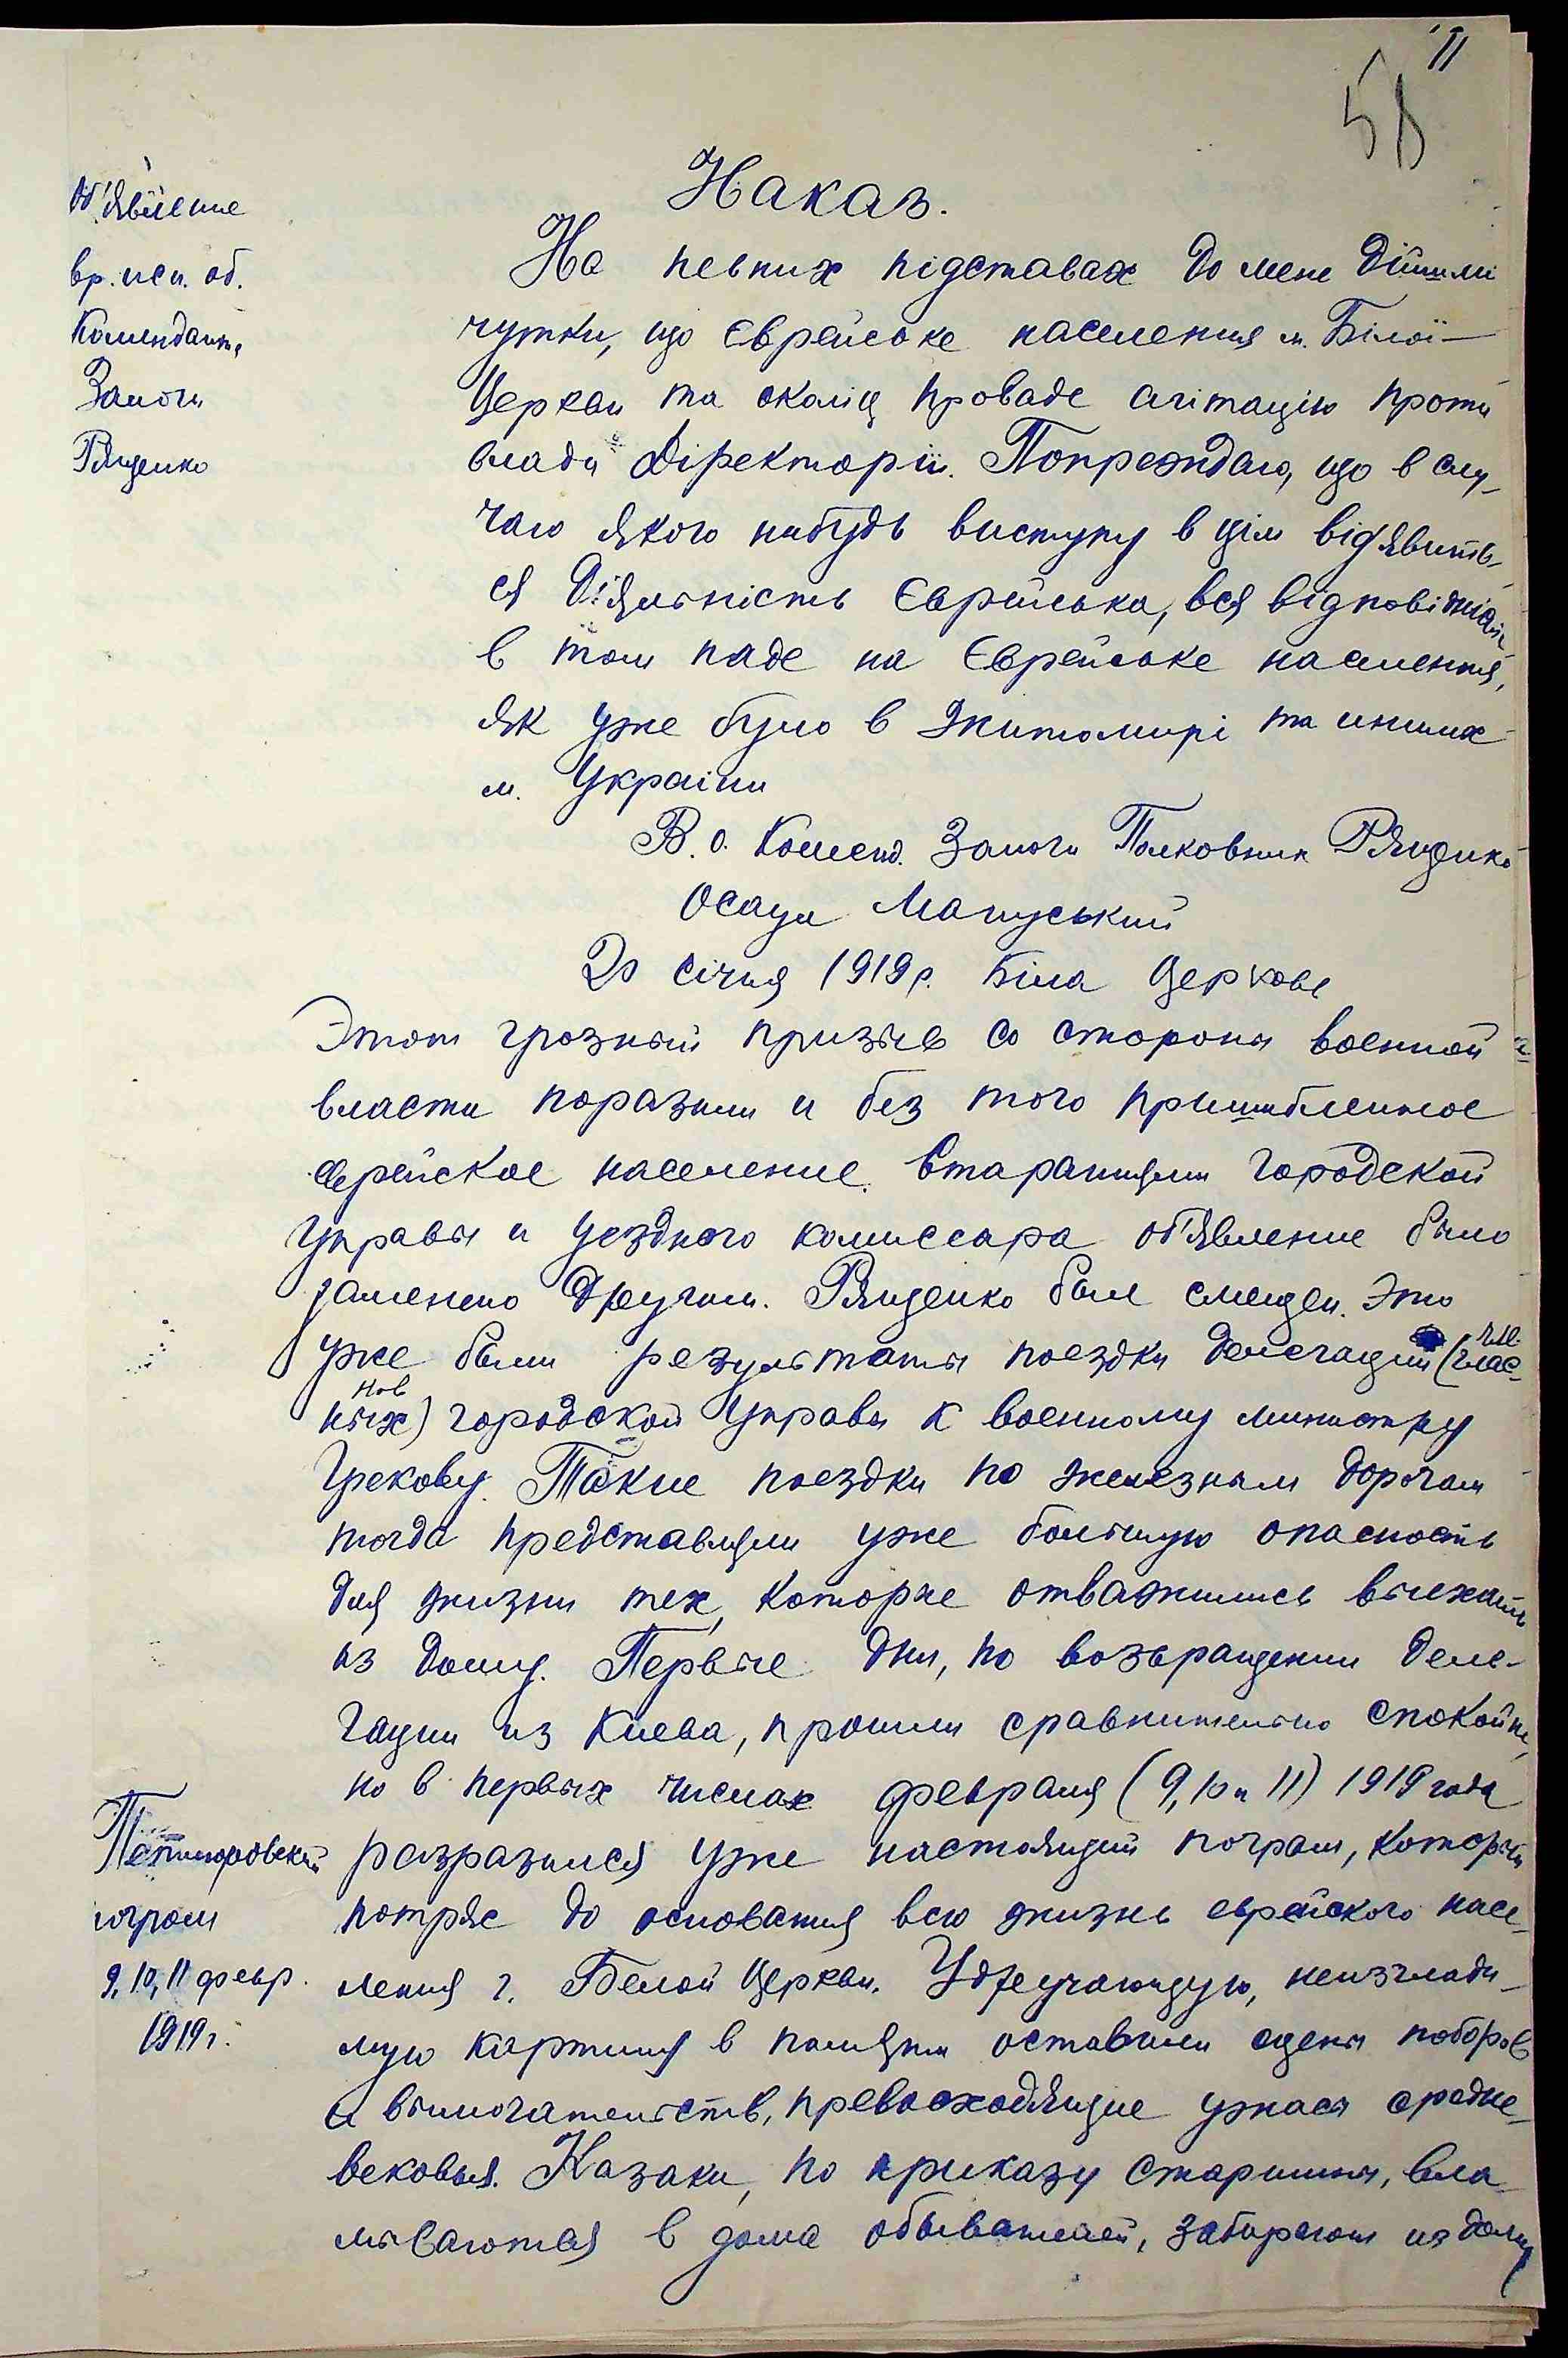 11
58
Наказ.
Об'явление
вр. исп. об.
Коменданта
Залоги
Рященко
На певних підставах до мене дійшлі
чутки, що Єврейське населення м. Білої-
Церкви та околіц проваде агітацію проти
влади Діректоріи. Попреждаю, що в слу-
чаю якого нибудь виступу в цім від'явить-
ся діяльність Єврейська, вся відповідніаль
в том паде на Єврейське населення,
як уже було в Житомирі та инших
м. Украіни
В. о. Коменд. Залоги Полковник Рященко
Осаул Магуський
20 січня 1919 р. Біла Церковь
Этот грозный призыв со стороны военной
власти поразили и без того пришибленное
еврейское население. Стараниями городской
управы и уездного комиссара об'явление было
заменено другим. Рященко был смещен. Это
уже были результаты поездки делегации (глас-
чле-
ных) городской управы к военному министру
нов
Грекову. Такие поездки по железным дорогам
тогда представляли уже большую опасность
для жизни тех, которые отважились выехать
из дому. Первые дни, по возвращении деле-
гации из Киева, прошли сравнительно спокойно,
но в первых числах февраля (9, 10 и 11) 1919 года
Петлюровский
погром
9, 10, 11 февр.
1919 г.
разразился уже настоящий погром, который
потряс до основания всю жизнь еврейского насе-
ления г. Белой Церкви. Удручающую, неизглади-
мую картину в памяти оставили сцены поборов
и вымогательств, превосходящие ужасы средне-
вековья. Казаки, по приказу старшины, вла-
мываются в дома обывателей, забирают из дому